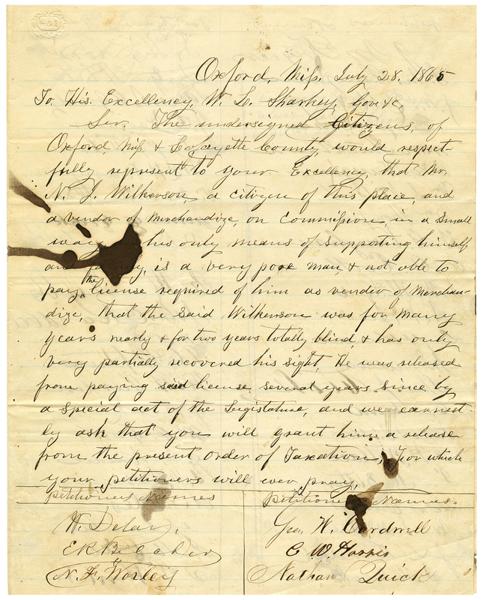 Oxford, Miss, July 28. 1865
To His Excellency, W. L. Sharkey, Gov &c,
Sir, The undersigned Citizens, of
Oxford, Miss & Lafayette County, would respect-
fully represent to your Excellency, that Mr.
N. J. Wilkerson, a citizen of this place, and
a vendor of Merchandize, on Commission, in a Small
way, his only means of Supporting himself
and family, is a very pore man & not able to
pay the license required of him as vendor of Merchan-
dize, that the Said Wilkerson was for many
years nearly & for two years totally blind, & has only
very partially recovered his Sight, He was released
from paying said license, Several years Since by
a Special act of the Legislature, and we earnest-
ly ask that you will grant him a release
from the present order of Taxation, For which
your petitioners will ever pray,
Petitioners Names
Petitioners Names.
H. Delay,
N. F. Worley
Geo. W. Cardwell
C W. Harris
Nathan Quick